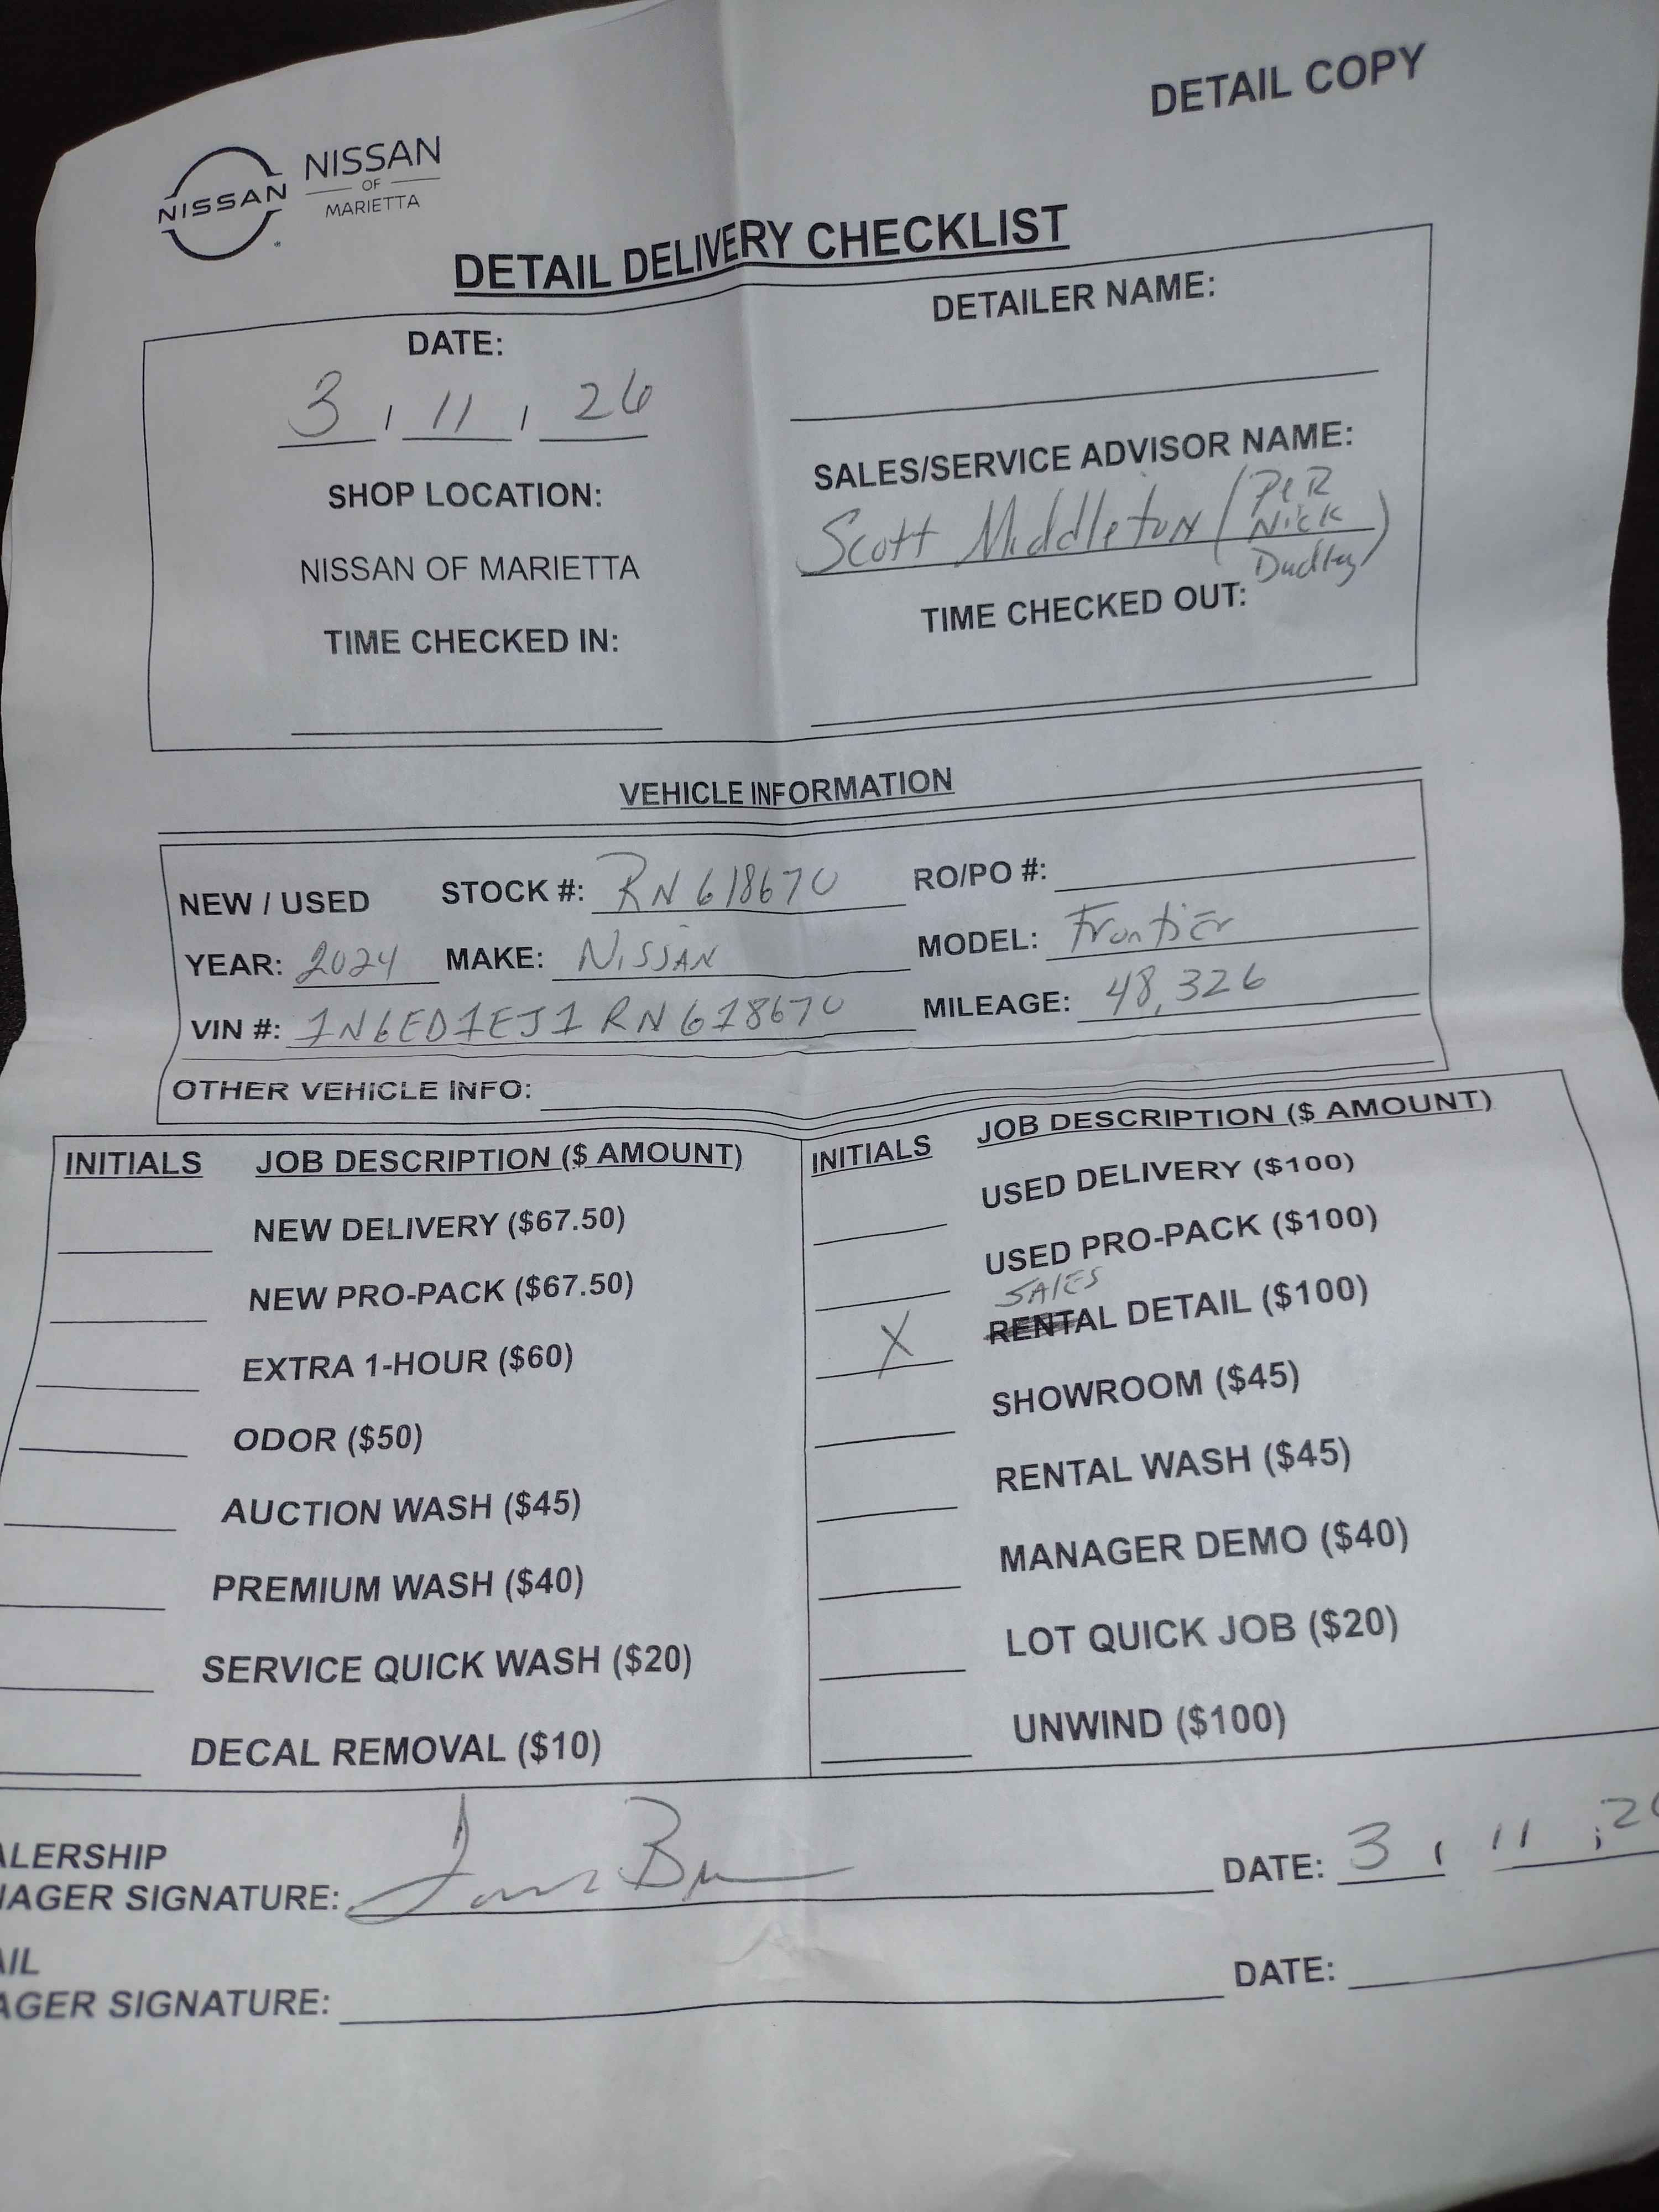 DETAIL COPY
NISSAN
NISSAN
OF
MARIETTA
DETAIL DELIVERY CHECKLIST
DATE:
3 / 11 / 26
SHOP LOCATION:
NISSAN OF MARIETTA
TIME CHECKED IN:
DETAILER NAME:
SALES/SERVICE ADVISOR NAME:
Scott Middleton (Per Nick Dudley)
TIME CHECKED OUT:
VEHICLE INFORMATION
NEW / USED STOCK #: RN618670 RO/PO #:
YEAR: 2024 MAKE: Nissan MODEL: Frontier
VIN #: 1N6ED1EJ1RN618670 MILEAGE: 48,326
OTHER VEHICLE INFO:
INITIALS JOB DESCRIPTION ($ AMOUNT)
NEW DELIVERY ($67.50)
NEW PRO-PACK ($67.50)
EXTRA 1-HOUR ($60)
ODOR ($50)
AUCTION WASH ($45)
PREMIUM WASH ($40)
SERVICE QUICK WASH ($20)
DECAL REMOVAL ($10)
INITIALS JOB DESCRIPTION ($ AMOUNT)
USED DELIVERY ($100)
USED PRO-PACK ($100)
SALES
X RENTAL DETAIL ($100)
SHOWROOM ($45)
RENTAL WASH ($45)
MANAGER DEMO ($40)
LOT QUICK JOB ($20)
UNWIND ($100)
ALERSHIP
AGER SIGNATURE: DATE: 3 / 11 / 2
AIL
AGER SIGNATURE: DATE: